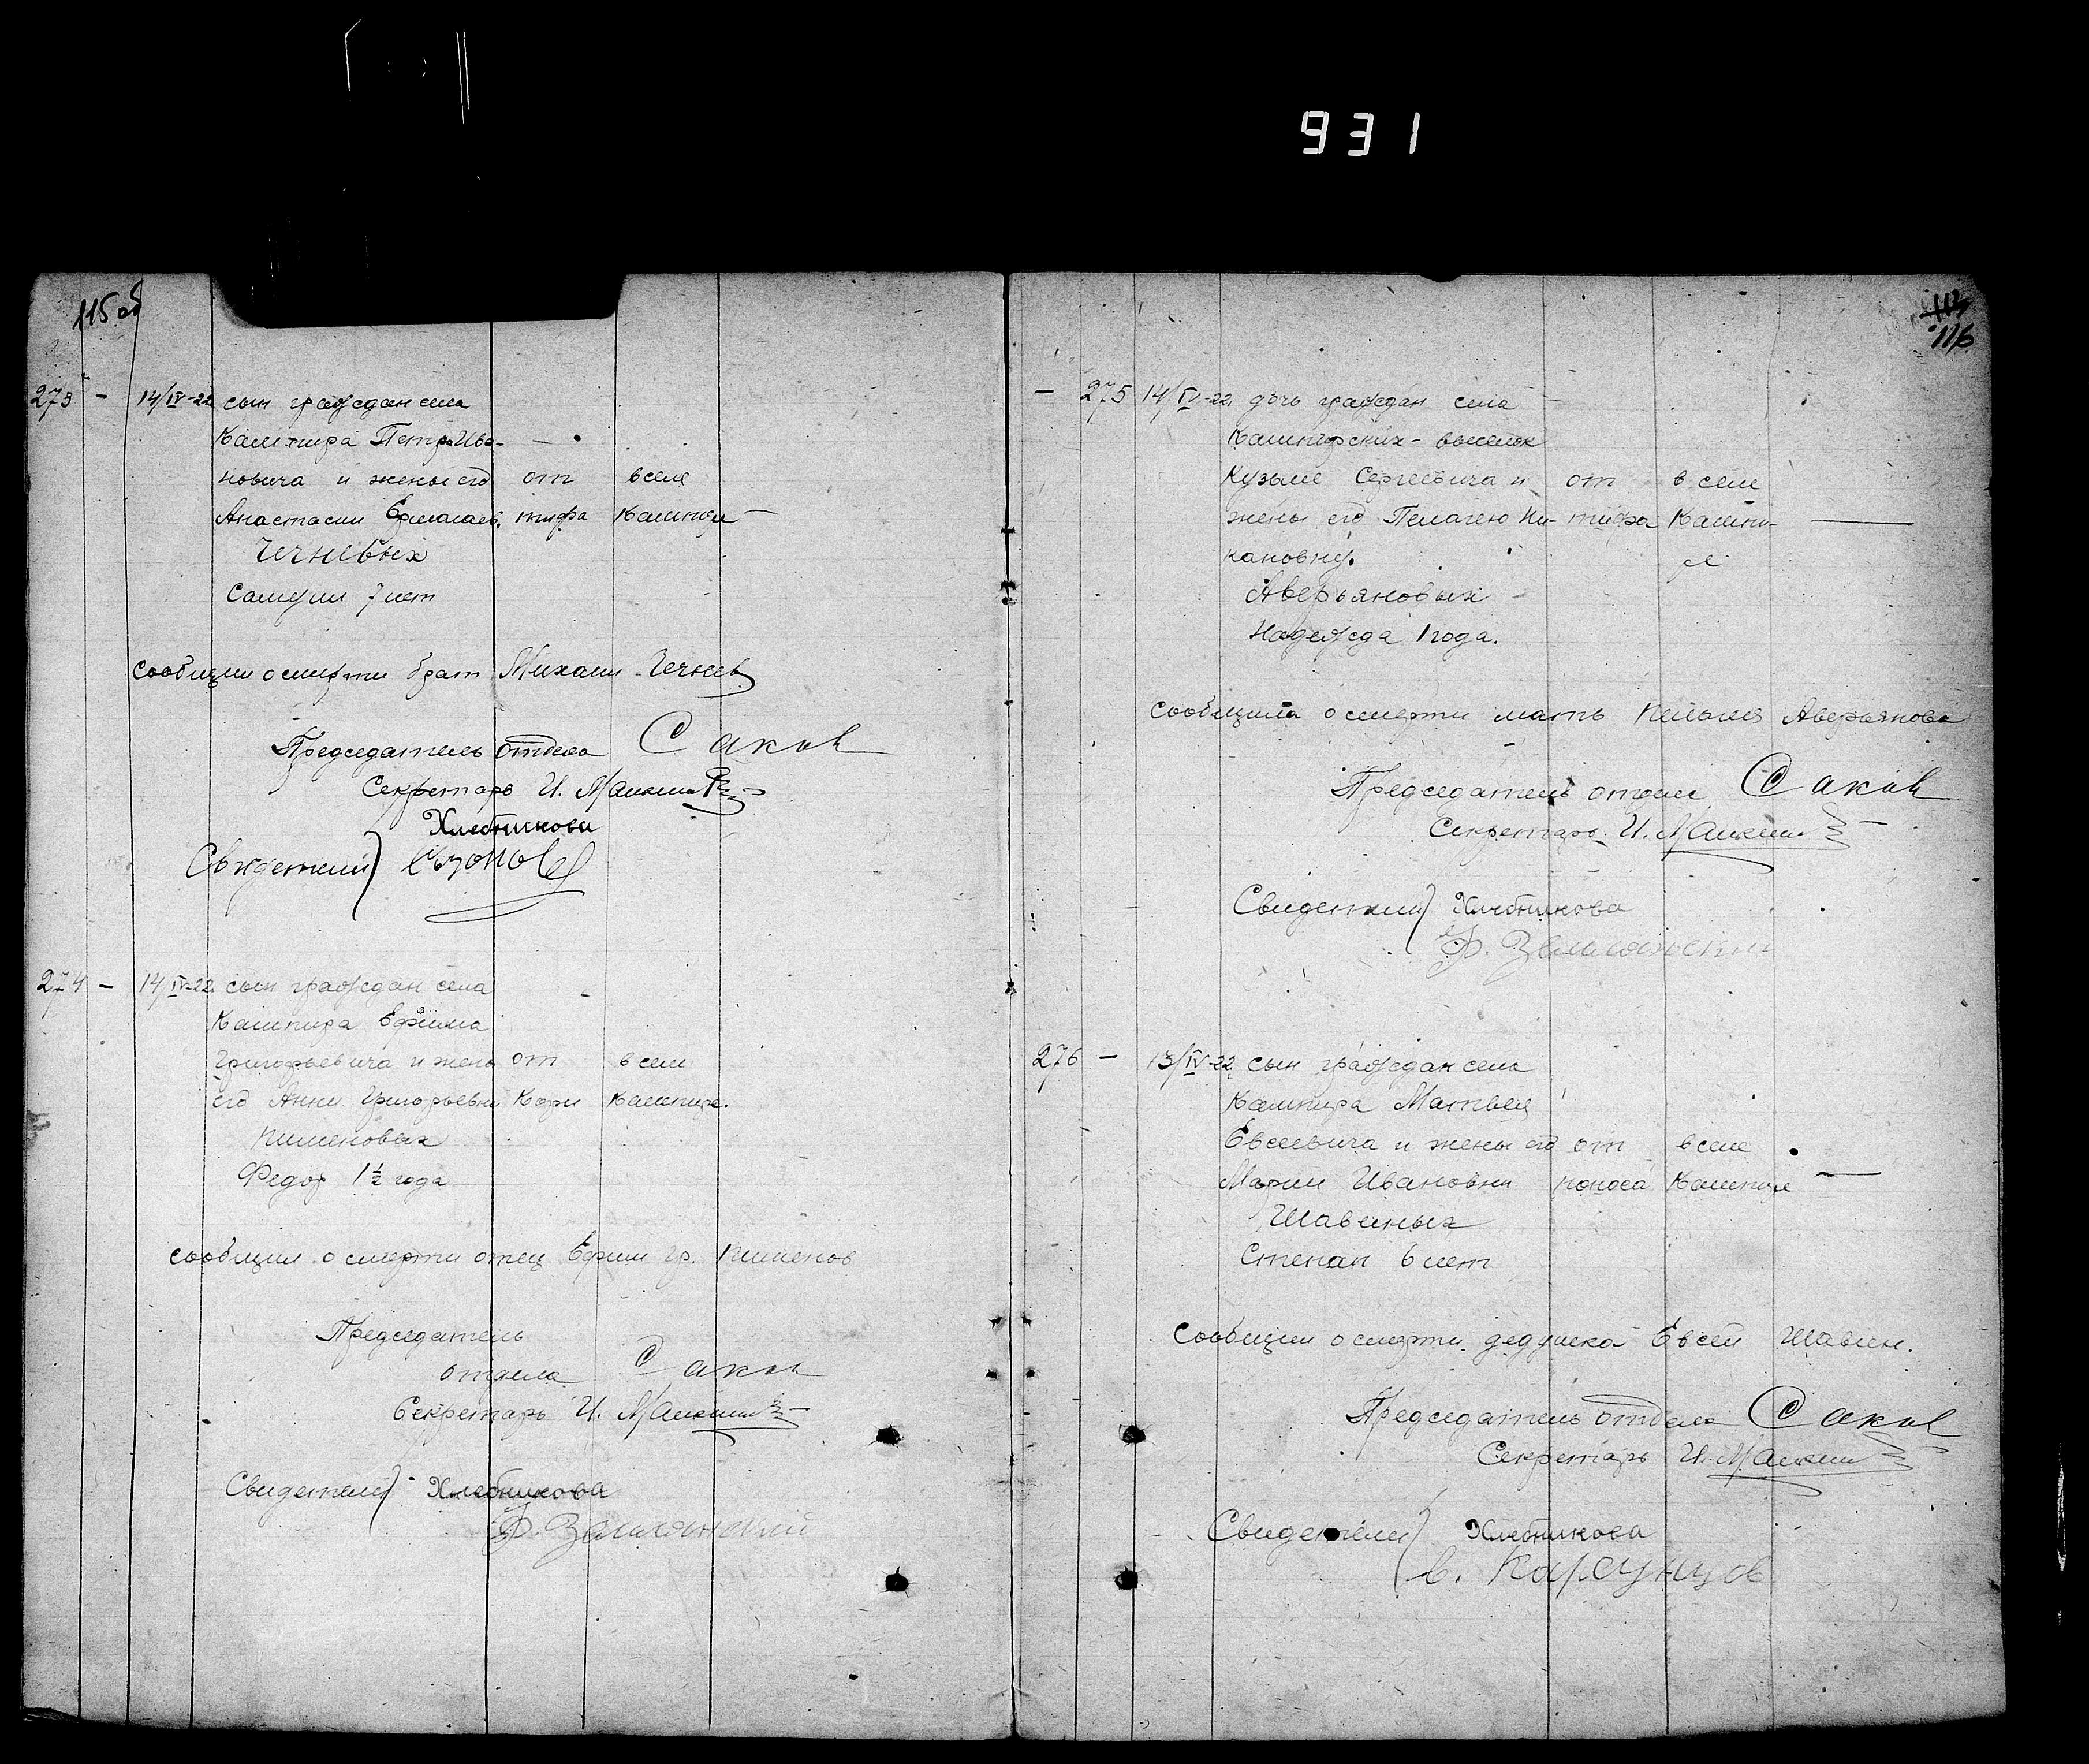 931
115 об
273 - 14/IV-22 сын граждан села
Кашпира Петра Ива-
новича и жены его от в селе
Анастасии Ермолаев. тифа Кашпире -
Чечневых
Самуил 7 лет
сообщил о смерти брат Михаил Чечнев
Председатель отдела Саков
Секретарь И. Малкин
Хлебникова
Свидетели) Сызонов
274 - 14/IV-22 сын граждан села
Кашпира Ефима
Григорьевича и жены от в селе
его Анны Григорьевны Кори Кашпире.
Пименовых
Федор 1½ года
сообщил о смерти отец Ефим Гр. Пименов
Председатель
отдела Саков
Секретарь И. Малкин
Свидетели) Хлебникова
Ф.
116
- 275 14/IV-22. дочь граждан села
Кашпирских-выселок
Кузьме Сергеевича и от в селе
жены его Пелагею Ни- тифа Кашпи-
кановну. ре
Аверьяновых
Надежда 1 года.
сообщила о смерти мать Аверьянова
Председатель отдела Саков
Секретарь И. Малкин
Свидетели) Хлебникова
Ф.
276 - 13/IV-22 сын граждан села
Кашпира Матвея
Евсеевича и жены его от в селе
Марии Ивановны поноса Кашпире -
Шавиных
Степан 6 лет
Сообщил о смерти дедушка Евсей Шавин.
Председатель отдела Саков
Секретарь И. Малкин
Свидетели) Хлебникова
В. Карсунцов